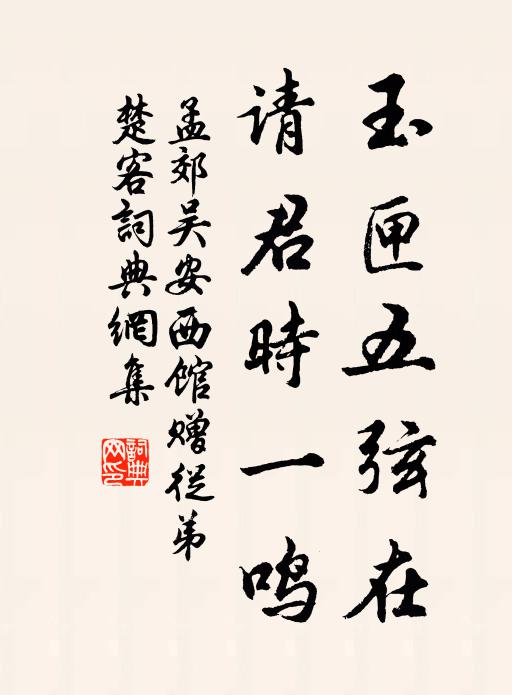 玉匣五弦在
请君時一鸣
孟郊吴安西馆赠從弟
楚客詞典網集
詞典网印